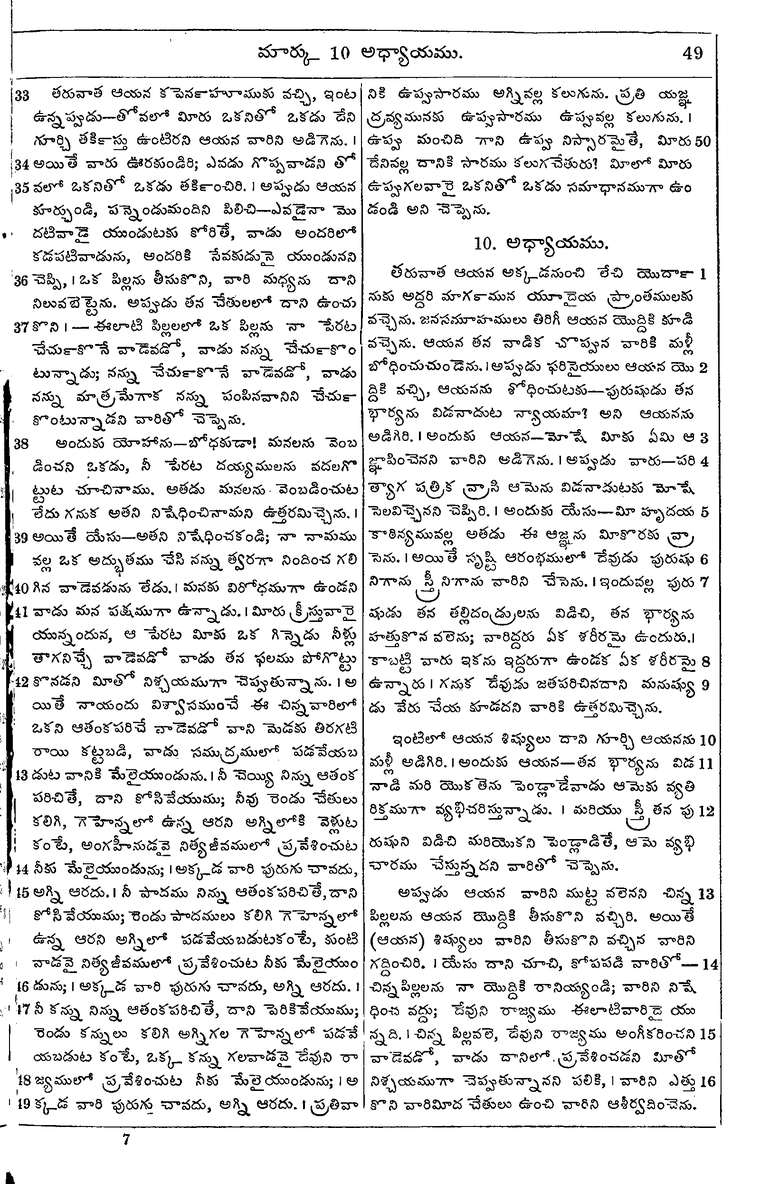 మార్కు 10 అధ్యాయము.
49
33 తరువాత ఆయన కపెర్నాహూముకు వచ్చి, ఇంట
ఉన్నప్పుడు—తోవలో మీరు ఒకనితో ఒకడు దేని
గూర్చి తర్కిస్తు ఉంటిరని ఆయన వారిని అడిగెను. ।
34 అయితే వారు ఊరకుండిరి; ఎవడు గొప్పవాడని తో
35 వలో ఒకనితో ఒకడు తర్కించిరి. । అప్పుడు ఆయన
కూర్చుండి, పన్నెండుమందిని పిలిచి—ఎవడైనా మొ
దటివాడై యుండుటకు కోరితే, వాడు అందరిలో
కడపటివాడును, అందరికి సేవకుడునై యుండునని
36 చెప్పి, । ఒక పిల్లను తీసుకొని, వారి మధ్యను దాని
నిలువబెట్టెను. అప్పుడు తన చేతులలో దాని ఉంచు
37 కొని । — ఈలాటి పిల్లలలో ఒక పిల్లను నా పేరట
చేచుర్కొనే వాడెవడో, వాడు నన్ను చేచుర్కొం
టున్నాడు; నన్ను చేచుర్కొనే వాడెవడో, వాడు
నన్ను మాత్రమేగాక నన్ను పంపినవానిని చేచుర్
కొంటున్నాడని వారితో చెప్పెను.
38 అందుకు యోహాను—బోధకుడా! మనలను వెంబ
డించని ఒకడు, నీ పేరట దయ్యములను వదలగొ
ట్టుట చూచినాము. అతడు మనలను వెంబడించుట
లేదు గనుక అతని నిషేధించినామని ఉత్తరమిచ్చెను. ।
39 అయితే యేసు—అతని నిషేధించకండి; నా నామము
వల్ల ఒక అద్భుతము చేసి నన్ను త్వరగా నిందించ గలి
40 గిన వాడెవడును లేడు. । మనకు విరోధముగా ఉండని
41 వాడు మన పక్షముగా ఉన్నాడు. । మీరు క్రీస్తువారై
యున్నందున, ఆ పేరట మీకు ఒక గిన్నెడు నీళ్లు
తాగనిచ్చే వాడెవడో వాడు తన ఫలము పోగొట్టు
42 కొనడని మీతో నిశ్చయముగా చెప్పుతున్నాను. । అ
యితే నాయందు విశ్వాసముంచే ఈ చిన్నవారిలో
ఒకని ఆతంకపరిచే వాడెవడో వాని మెడకు తిరగటి
రాయి కట్టబడి, వాడు సముద్రములో పడవేయబ
13 డుట వానికి మేలైయుండును. । నీ చెయ్యి నిన్ను ఆతంక
పరిచితే, దాని కోసివేయుము; నీవు రెండు చేతులు
కలిగి, గెహెన్నలో ఉన్న ఆరని అగ్నిలోకి వెళ్లుట
కంటే, అంగహీనుడవై నిత్యజీవములో ప్రవేశించుట
14 నీకు మేలైయుండును; । అక్కడ వారి పురుగు చావదు,
15 అగ్ని ఆరదు. । నీ పాదము నిన్ను ఆతంకపరిచితే, దాని
కోసివేయుము; రెండు పాదములు కలిగి గెహెన్నలో
ఉన్న ఆరని అగ్నిలో పడవేయబడుటకంటే, కుంటి
వాడవై నిత్యజీవములో ప్రవేశించుట నీకు మేలైయుం
16 డును; । అక్కడ వారి పురుగు చావదు, అగ్ని ఆరదు. ।
17 నీ కన్ను నిన్ను ఆతంకపరిచితే, దాని పెరికివేయుము;
రెండు కన్నులు కలిగి అగ్నిగల గెహెన్నలో పడవే
యబడుట కంటే, ఒక్క కన్ను గలవాడవై దేవుని రా
18 జ్యములో ప్రవేశించుట నీకు మేలైయుండును; । అ
19 క్కడ వారి పురుగు చావదు, అగ్ని ఆరదు. । ప్రతివా
నికి ఉప్పుసారము అగ్నివల్ల కలుగును. ప్రతి యజ్ఞ
ద్రవ్యమునకు ఉప్పుసారము ఉప్పువల్ల కలుగును. ।
ఉప్పు మంచిది గాని ఉప్పు నిస్సారమైతే, మీరు 50
దేనివల్ల దానికి సారము కలుగచేతురు? మీలో మీరు
ఉప్పుగలవారై ఒకనితో ఒకడు సమాధానముగా ఉం
డండి అని చెప్పెను.
10. అధ్యాయము.
తరువాత ఆయన అక్కడనుంచి లేచి యొర్దా 1
నుకు అద్దరి మార్గమున యూదైయ ప్రాంతములకు
వచ్చెను. జనసమూహములు తిరిగీ ఆయన యొద్దికి కూడి
వచ్చెను. ఆయన తన వాడిక చొప్పున వారికి మళ్లీ
బోధించుచుండెను. । అప్పుడు ఫరిసైయులు ఆయన యొ 2
ద్దికి వచ్చి, ఆయనను శోధించుటకు—పురుషుడు తన
భార్యను విడనాడుట న్యాయమా? అని ఆయనను
అడిగిరి. । అందుకు ఆయన—మోషే మీకు ఏమి ఆ 3
జ్ఞాపించెనని వారిని అడిగెను. । అప్పుడు వారు—పరి 4
త్యాగ పత్రిక వ్రాసి ఆమెను విడనాడుటకు మోషే
సెలవిచ్చెనని చెప్పిరి. । అందుకు యేసు—మీ హృదయ 5
కాఠిన్యమువల్ల అతడు ఈ ఆజ్ఞను మీకొరకు వ్రా
సెను. । అయితే సృష్టి ఆరంభములో దేవుడు పురుషు 6
నిగాను స్త్రీ నిగాను వారిని చేసెను. । ఇందువల్ల పురు 7
షుడు తన తల్లిదండ్రులను విడిచి, తన భార్యను
హత్తుకొన వలెను; వారిద్దరు ఏక శరీరమై ఉందురు. ।
కాబట్టి వారు ఇకను ఇద్దరుగా ఉండక ఏక శరీరమై 8
ఉన్నారు । గనుక దేవుడు జతపరిచినదాని మనుష్యు 9
డు వేరు చేయ కూడదని వారికి ఉత్తరమిచ్చెను.
ఇంటిలో ఆయన శిష్యులు దాని గూర్చి ఆయనను 10
మళ్లీ అడిగిరి. । అందుకు ఆయన—తన భార్యను విడ 11
నాడి మరి యొకతెను పెండ్లాడేవాడు ఆమెకు వ్యతి
రిక్తముగా వ్యభిచరిస్తున్నాడు. । మరియు స్త్రీ తన పు 12
రుషుని విడిచి మరియొకని పెండ్లాడితే, ఆమె వ్యభి
చారము చేస్తున్నదని వారితో చెప్పెను.
అప్పుడు ఆయన వారిని ముట్ట వలెనని చిన్న 13
పిల్లలను ఆయన యొద్దికి తీసుకొని వచ్చిరి. అయితే
(ఆయన) శిష్యులు వారిని తీసుకొని వచ్చిన వారిని
గద్దించిరి. । యేసు దాని చూచి, కోపపడి వారితో— 14
చిన్నపిల్లలను నా యొద్దికి రానియ్యండి; వారిని నిషే
ధించ వద్దు; దేవుని రాజ్యము ఈలాటివారిదై యు
న్నది. । చిన్న పిల్లవలె, దేవుని రాజ్యము అంగీకరించని 15
వాడెవడో, వాడు దానిలో ప్రవేశించడని మీతో
నిశ్చయముగా చెప్పుతున్నానని పలికి, । వారిని ఎత్తు 16
కొని వారిమీద చేతులు ఉంచి వారిని ఆశీర్వదించెను.
7